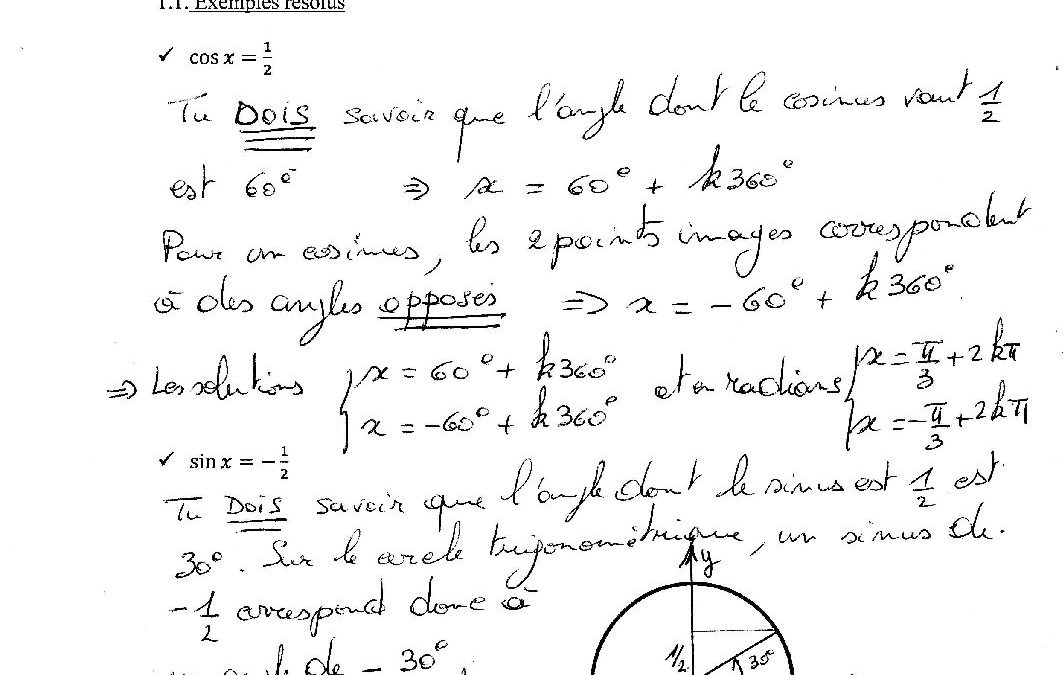 1.1. Exemples résolus
✓ cos x = 1/2
Tu DOIS savoir que l'angle dont le cosinus vaut 1/2
est 60° ⇒ x = 60° + k360°
Pour un cosinus, les 2 points images correspondent
à des angles opposés ⇒ x = -60° + k360°
⇒ Les solutions { x = 60° + k360° et en radians { x = π/3 + 2kπ
x = -60° + k360° x = -π/3 + 2kπ
✓ sin x = -1/2
Tu DOIS savoir que l'angle dont le sinus est 1/2 est
30°. Sur le cercle trigonométrique, un sinus de
-1/2 correspond donc à
de -30°,
y
1/2 30°